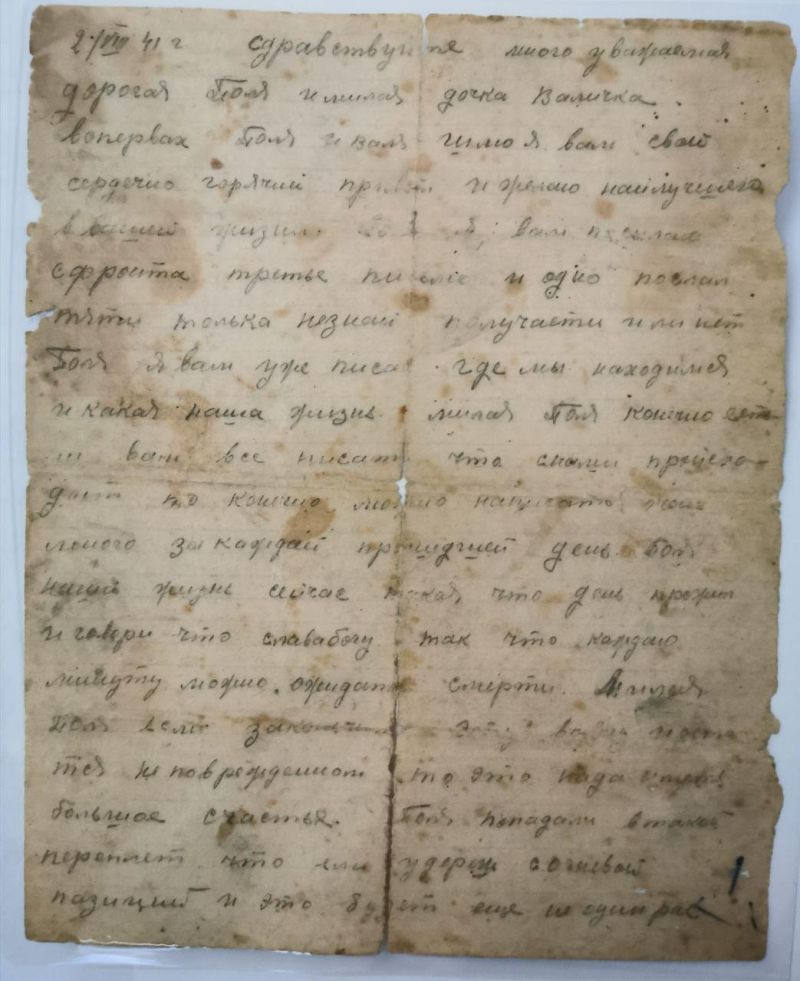 2/VIII 41 г здравствуйте много уважаемая
дорогая Поля и милая дочка Валичка.
вопервах Поля и Валя шлю я вам свой
сердечно горячий привет и желаю наилучшего
в вашей жизни. я, вам послал
с фронта третье письмо и одно послал
только незнай получаети или нет
Поля я вам уже писал где мы находимся
и какая наша жизнь. милая Поля конечно
ли вам все писать что снами
но конечно можно написать
много за каждай прошидший день. Поля
наша жизнь сейчас такая что день прожил
и говори что славабогу так что каждаю
минуту можно ожидать смерти. милая
Поля если
тся не поврежденном то это нада
большое счастье. Поля попадали в такой
переплет что еле удереш с огневой
пазиций и это будет еще не один раз